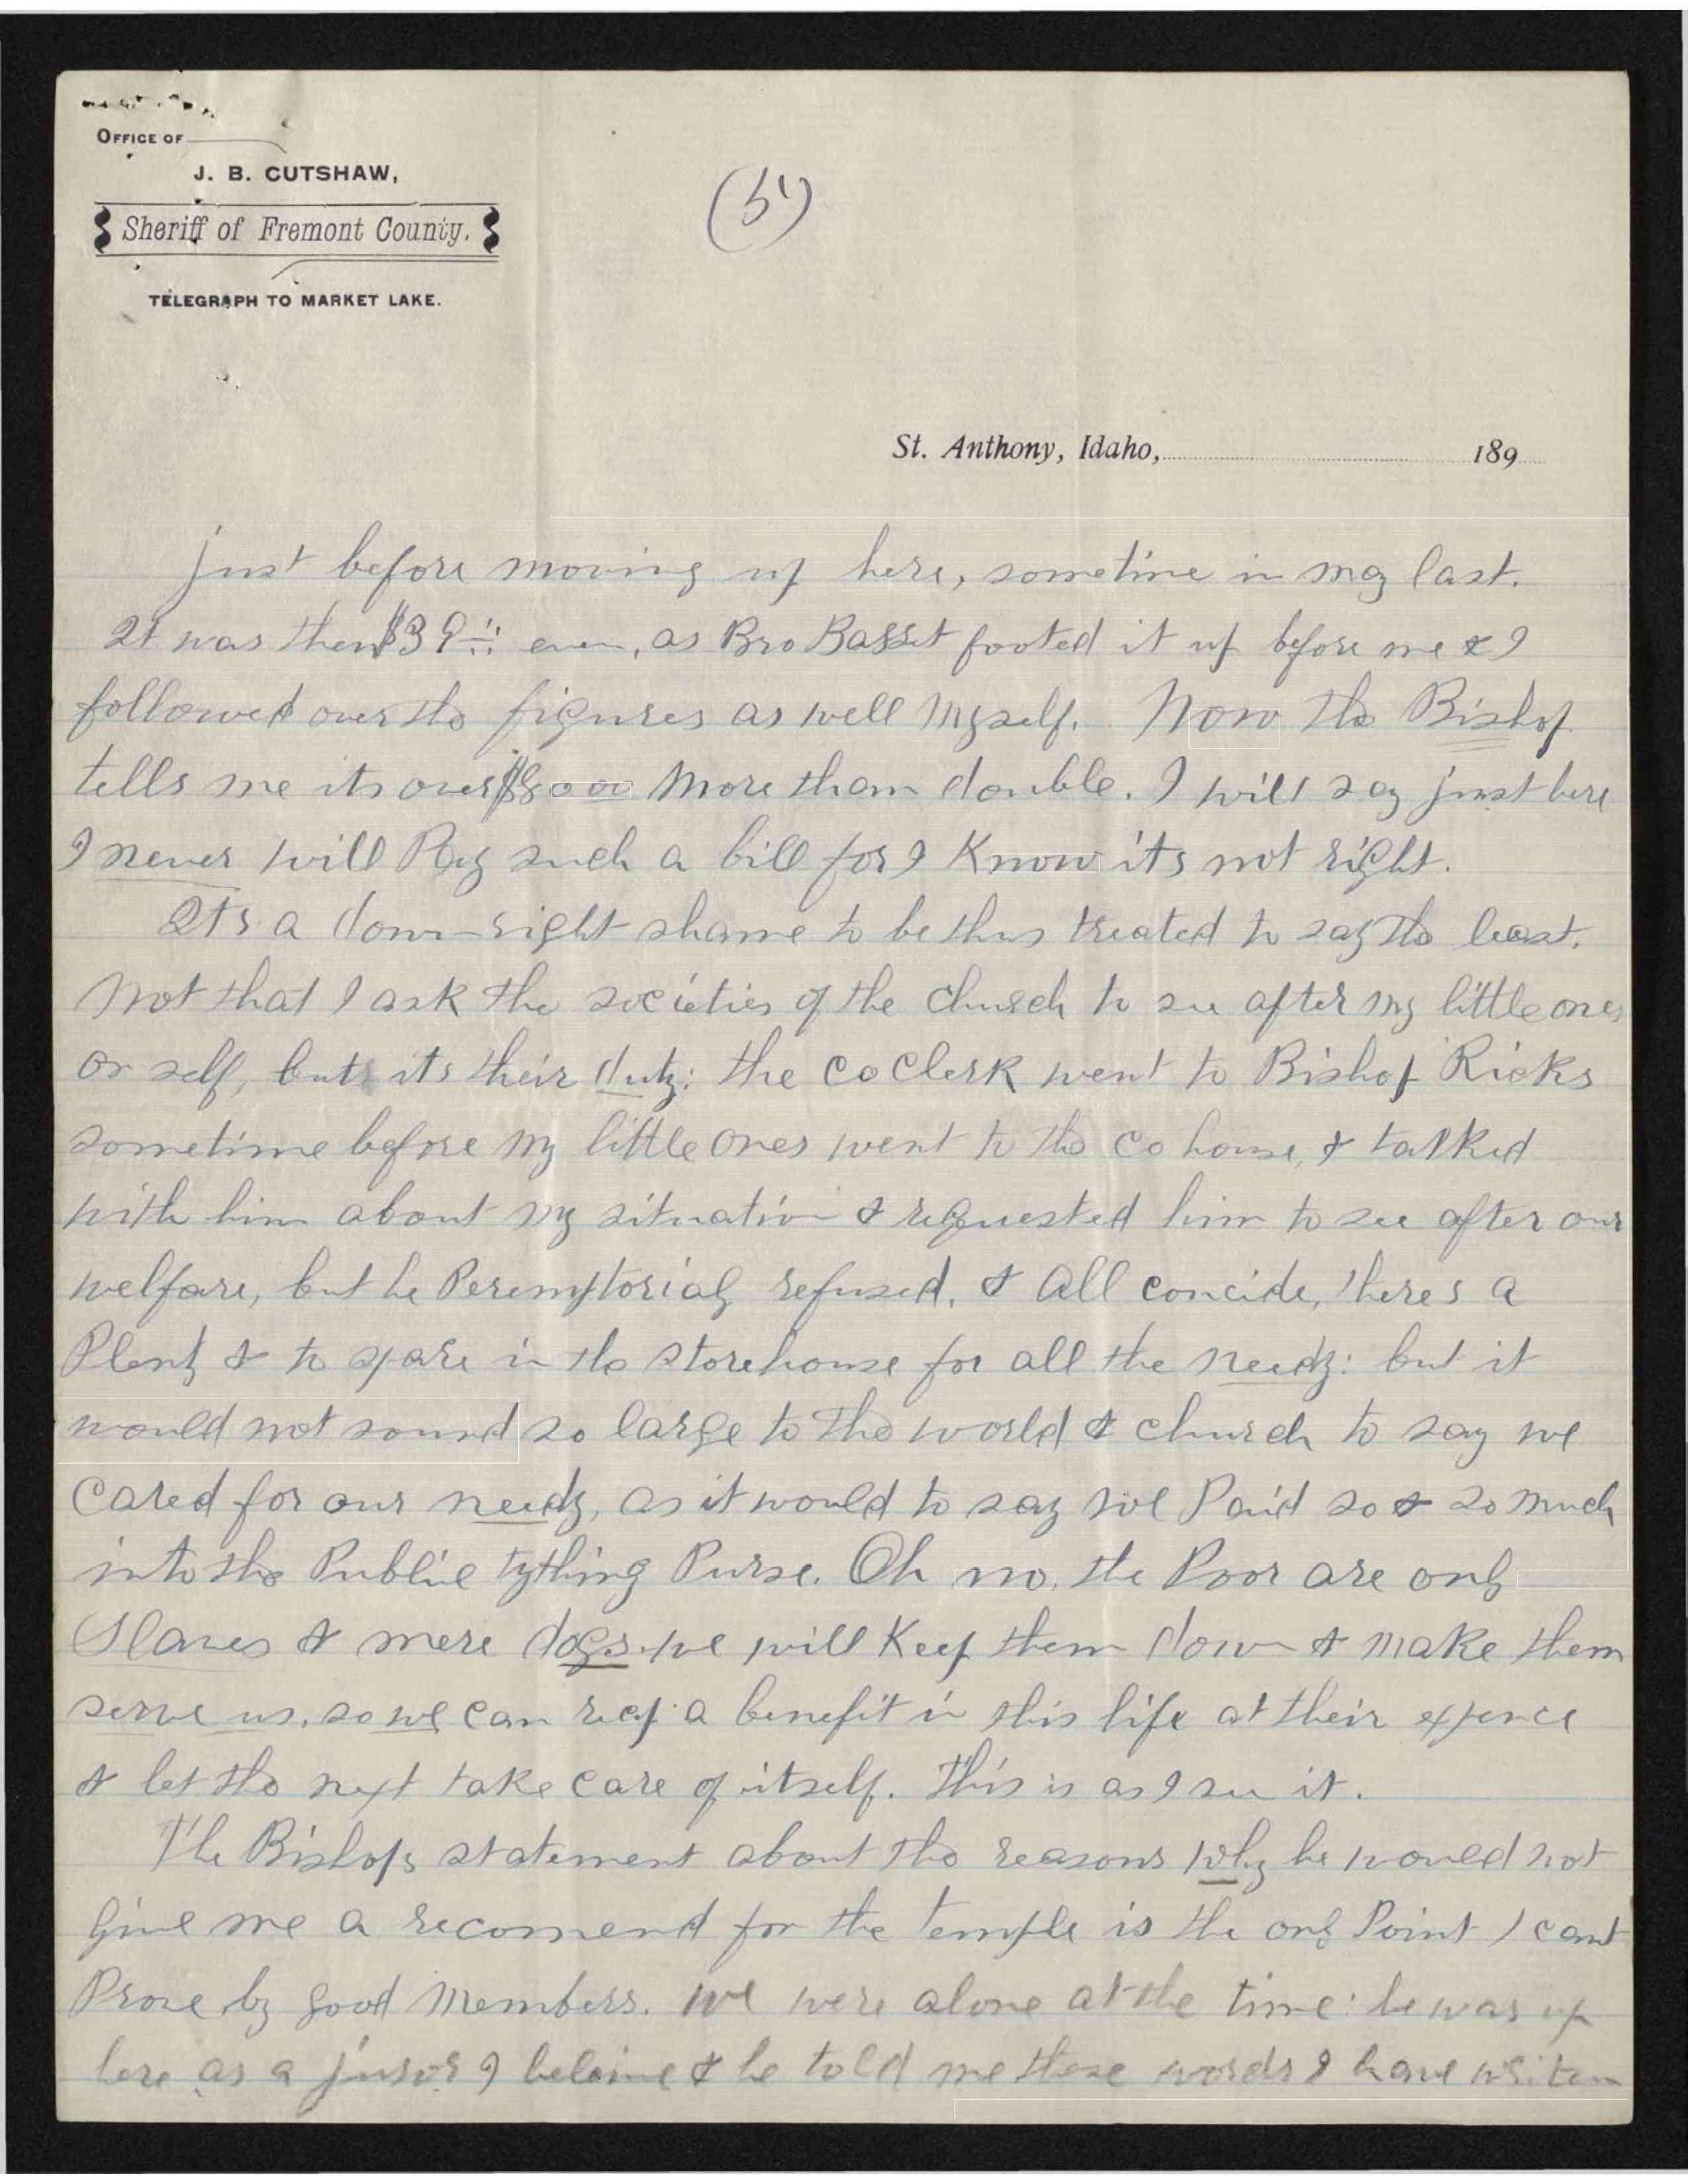 OFFICE OF
J. B. CUTSHAW,
Sheriff of Fremont County.
TELEGRAPH TO MARKET LAKE.
(5)
St. Anthony, Idaho, 189
just before moving up here, sometime in may last.
It was then $39 even, as Bro Basset footed it up before me & I
followed over the figures as well myself. Now the Bishop
tells me its over $80 00 More than double. I will say just here
I never will Pay such a bill for I Know its not right.
Its a down-right shame to be thus treated to say the least.
Not that I ask the societies of the church to see after my little ones
or self, but its their duty: the Co Clerk went to Bishop Ricks
sometime before my little ones went to the Co house, & talked
with him about my situation & requested him to see after our
welfare, but he Peremptorialy refused. & all concide, theres a
Plenty & to spare in the storehouse for all the needy: but it
would not sound so large to the world & church to say we
cared for our needy, as it would to say we Paid so & so much
into the Public tything Purse. Oh no, the Poor are only
Slaves & mere dogs. we will Keep them down & make them
serve us, so we can reap a benefit in this life at their expence
& let the next take care of itself. This is as I see it.
The Bishops statement about the reasons why he would not
give me a recomend for the temple is the only Point I cant
Prove by good Members. we were alone at the time: he was up
here as a juror I beleive & he told me these words I have writen